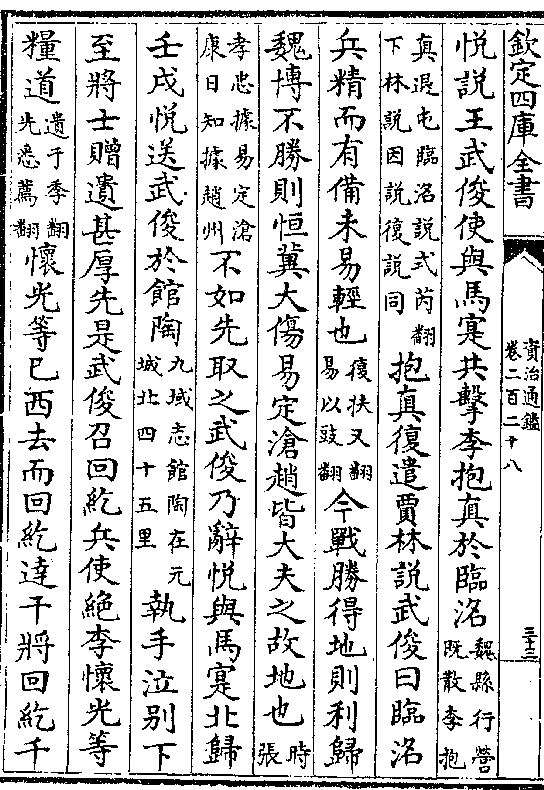 欽定四庫全書
資治通鑑
卷二百二十八
三十三
悅說王武俊使與馬寔共擊李抱真於臨洺魏縣行營既散李抱
真退屯臨洺說式芮翻下林說因說復說同抱真復遣賈林說武俊曰臨洺
兵精而有備未易輕也復扶又翻易以豉翻今戰勝得地則利歸
魏博不勝則恒冀大傷易定滄趙皆大夫之故地也時張
孝忠據易定滄康日知據趙州不如先取之武俊乃辭悅與馬寔北歸
壬戌悅送武俊於館陶九域志館陶在元城北四十五里執手泣别下
至將士贈遺甚厚先是武俊召回紇兵使絶李懷光等
糧道遺于季翻先悉薦翻懷光等已西去而回紇達干將回紇千